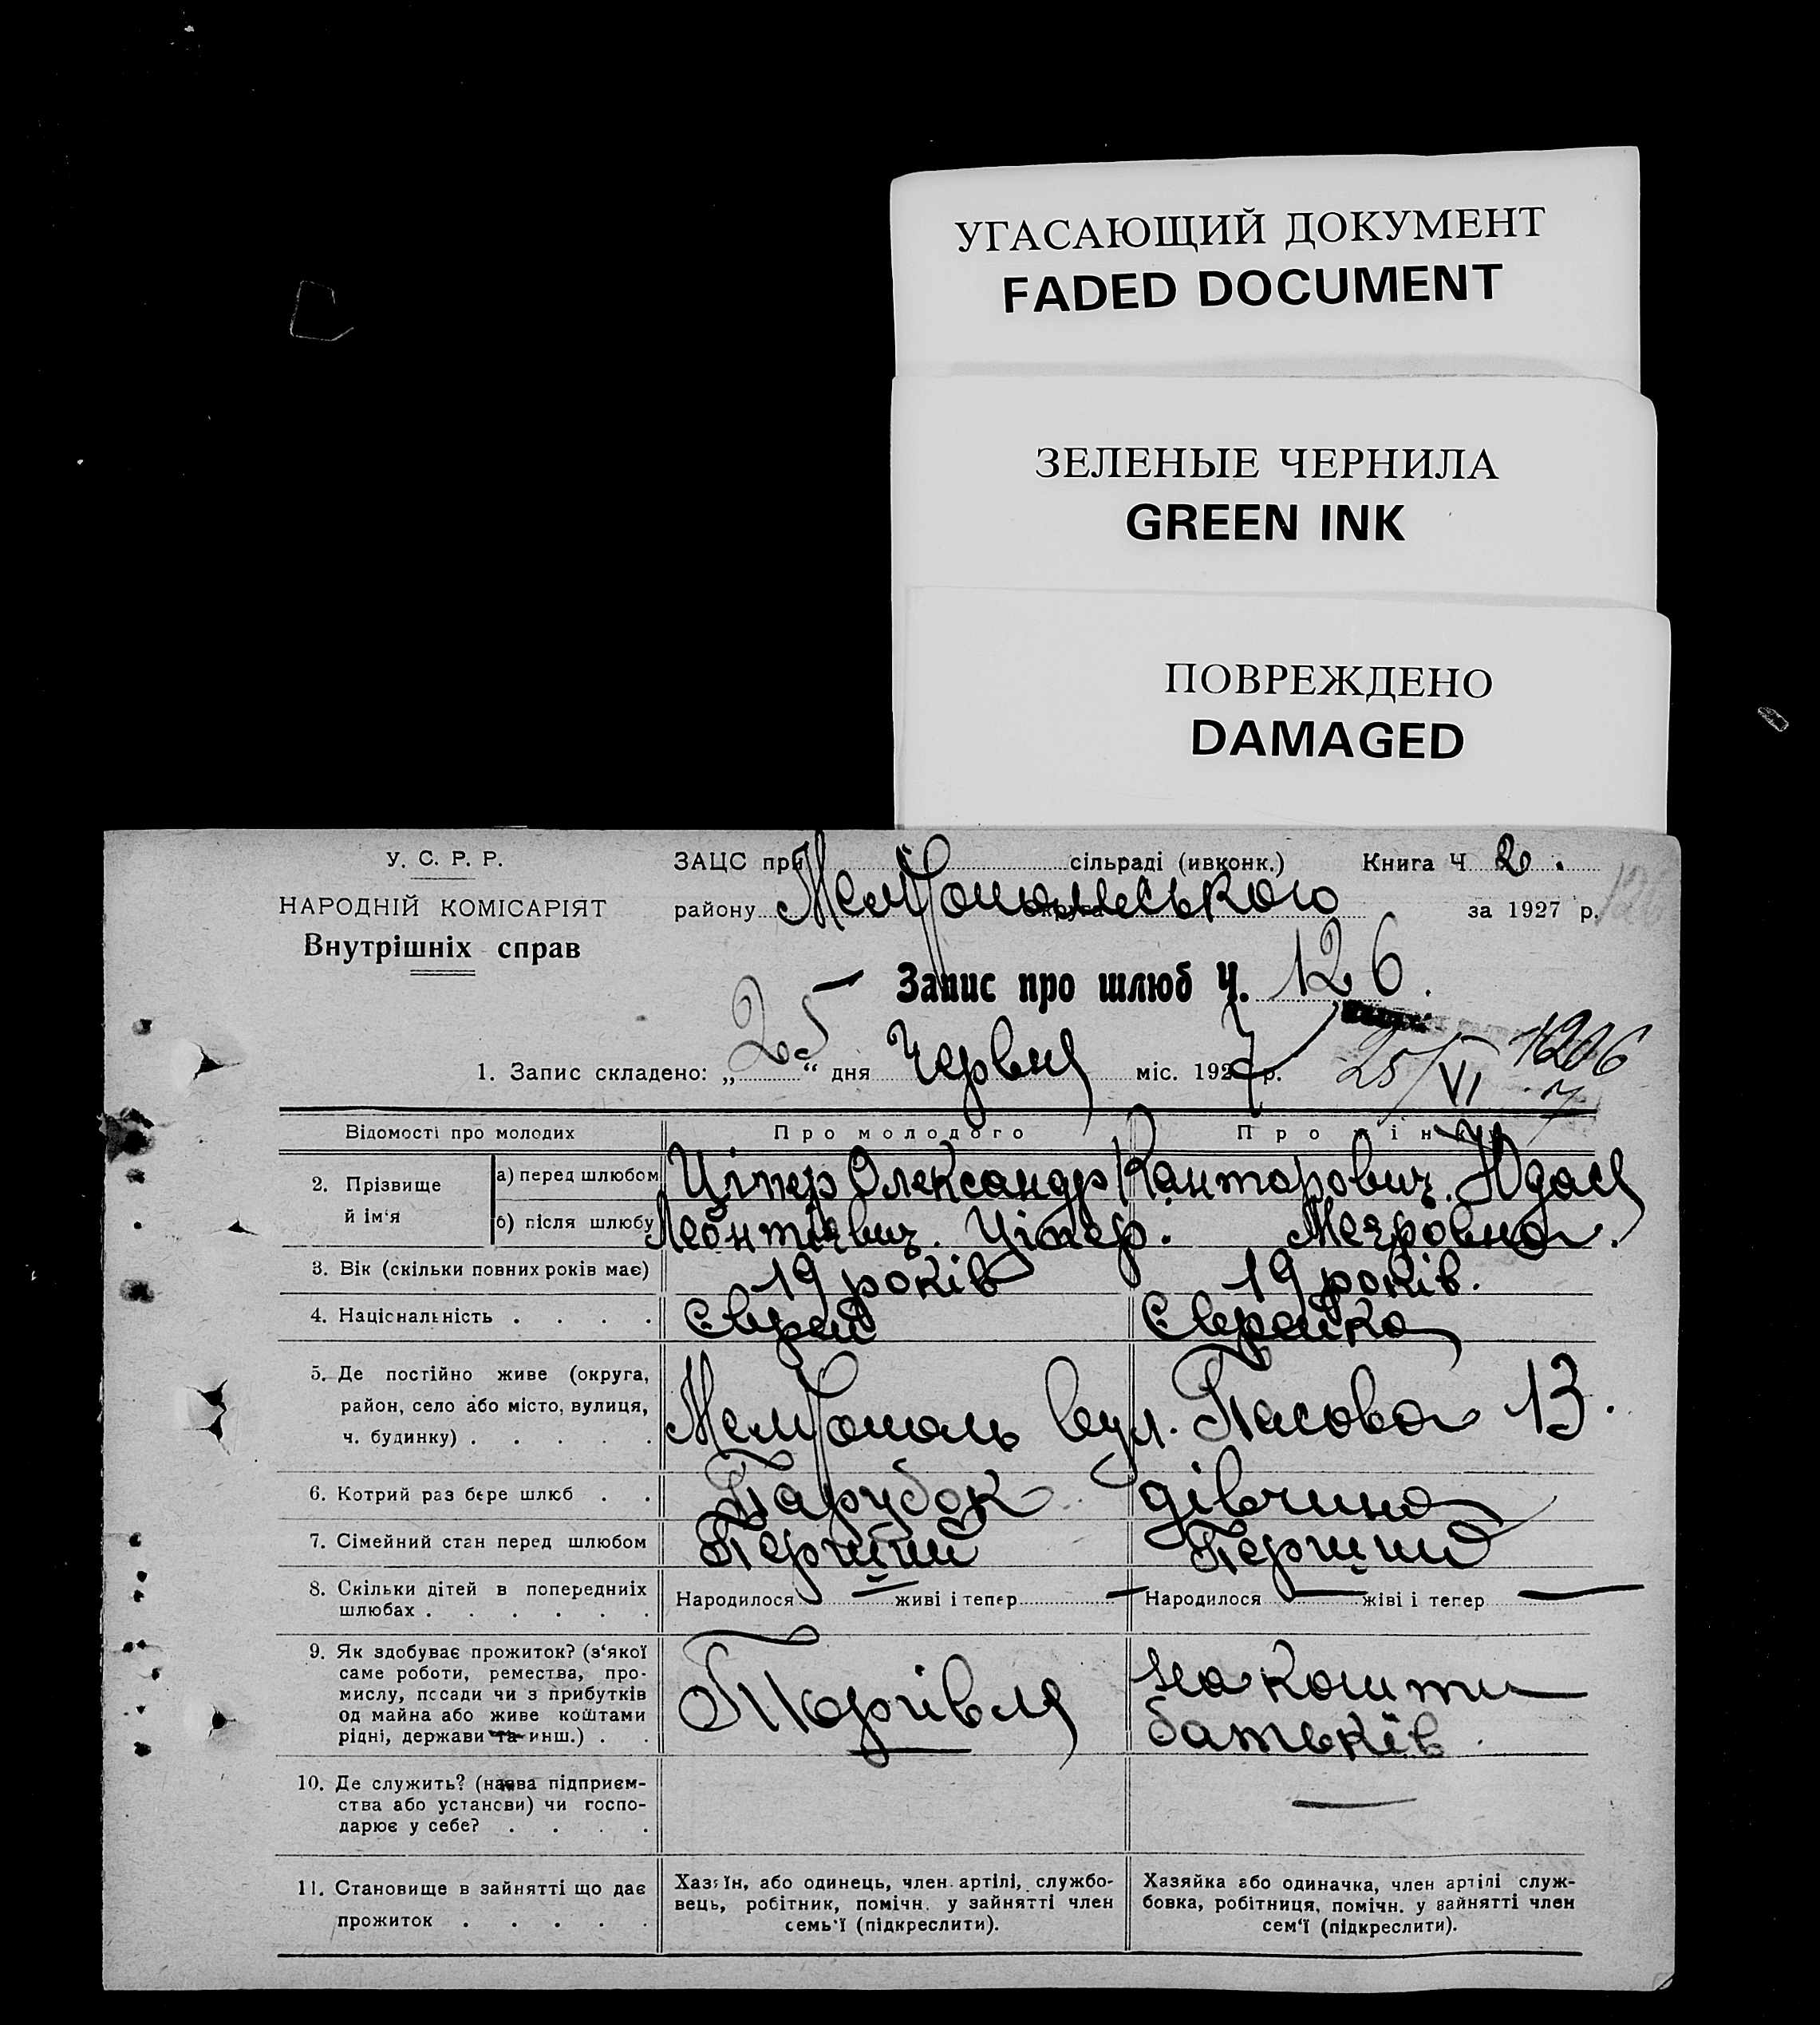 УГАСАЮЩИЙ ДОКУМЕНТ
FADED DOCUMENT
ЗЕЛЕНЫЕ ЧЕРНИЛА
GREEN INK
ПОВРЕЖДЕНО
DAMAGED
У. С. Р. Р.
НАРОДНІЙ КОМІСАРІЯТ
Внутрішніх справ
ЗАЦС при сільраді (ивконк.) Книга Ч 2.
району Мелітопольського за 1927 р.
126
Запис про шлюб Ч. 126.
1. Запис складено: „25“ дня Червня міс. 1927 р. 25/VI
Відомості про молодих Про молодого Про жінку
2. Прізвище й ім‘я
а) перед шлюбом Ціпер Олександр Канторович Юдася
б) після шлюбу Леонтієвич. Ціпер. Меєровна.
3. Вік (скільки повних років має) 19 років 19 років.
4. Національність . . . . Єврей Єврейка
5. Де постійно живе (округа,
район, село або місто, вулиця,
ч. будинку) . . . . . Мелітополь вул. 13.
6. Котрий раз бере шлюб . . Парубок дівчина
7. Сімейний стан перед шлюбом Перший Перший
8. Скільки дітей в попередниіх
шлюбах . . . . . . Народилося — живі і тепер — Народилося — жіві і тепер —
9. Як здобуває прожиток? (з‘якої
саме роботи, ремества, про-
мислу, посади чи з прибутків
од майна або живе коштами
рідні, держави та инш.) . .
Торгівля
на кошти
батьків.
10. Де служить? (назва підприєм-
ства або установи) чи госпо-
дарює у себе? . . . . —
11. Становище в зайнятті що дає
прожиток . . . . .
Хазяїн, або одинець, член артілі, службо-
вець, робітник, помічн. у зайнятті член
семь‘ї (підкреслити).
Хазяйка або одиначка, член артілі служ-
бовка, робітниця, помічн. у зайнятті член
сем‘ї (підкреслити).